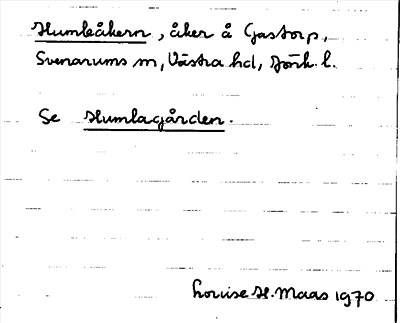 Humleåkern, åker å Gastorp,
Svenarums sn, Västra hd, Jönk. l.
Se Humlagården.
Louise H. Maas 1970